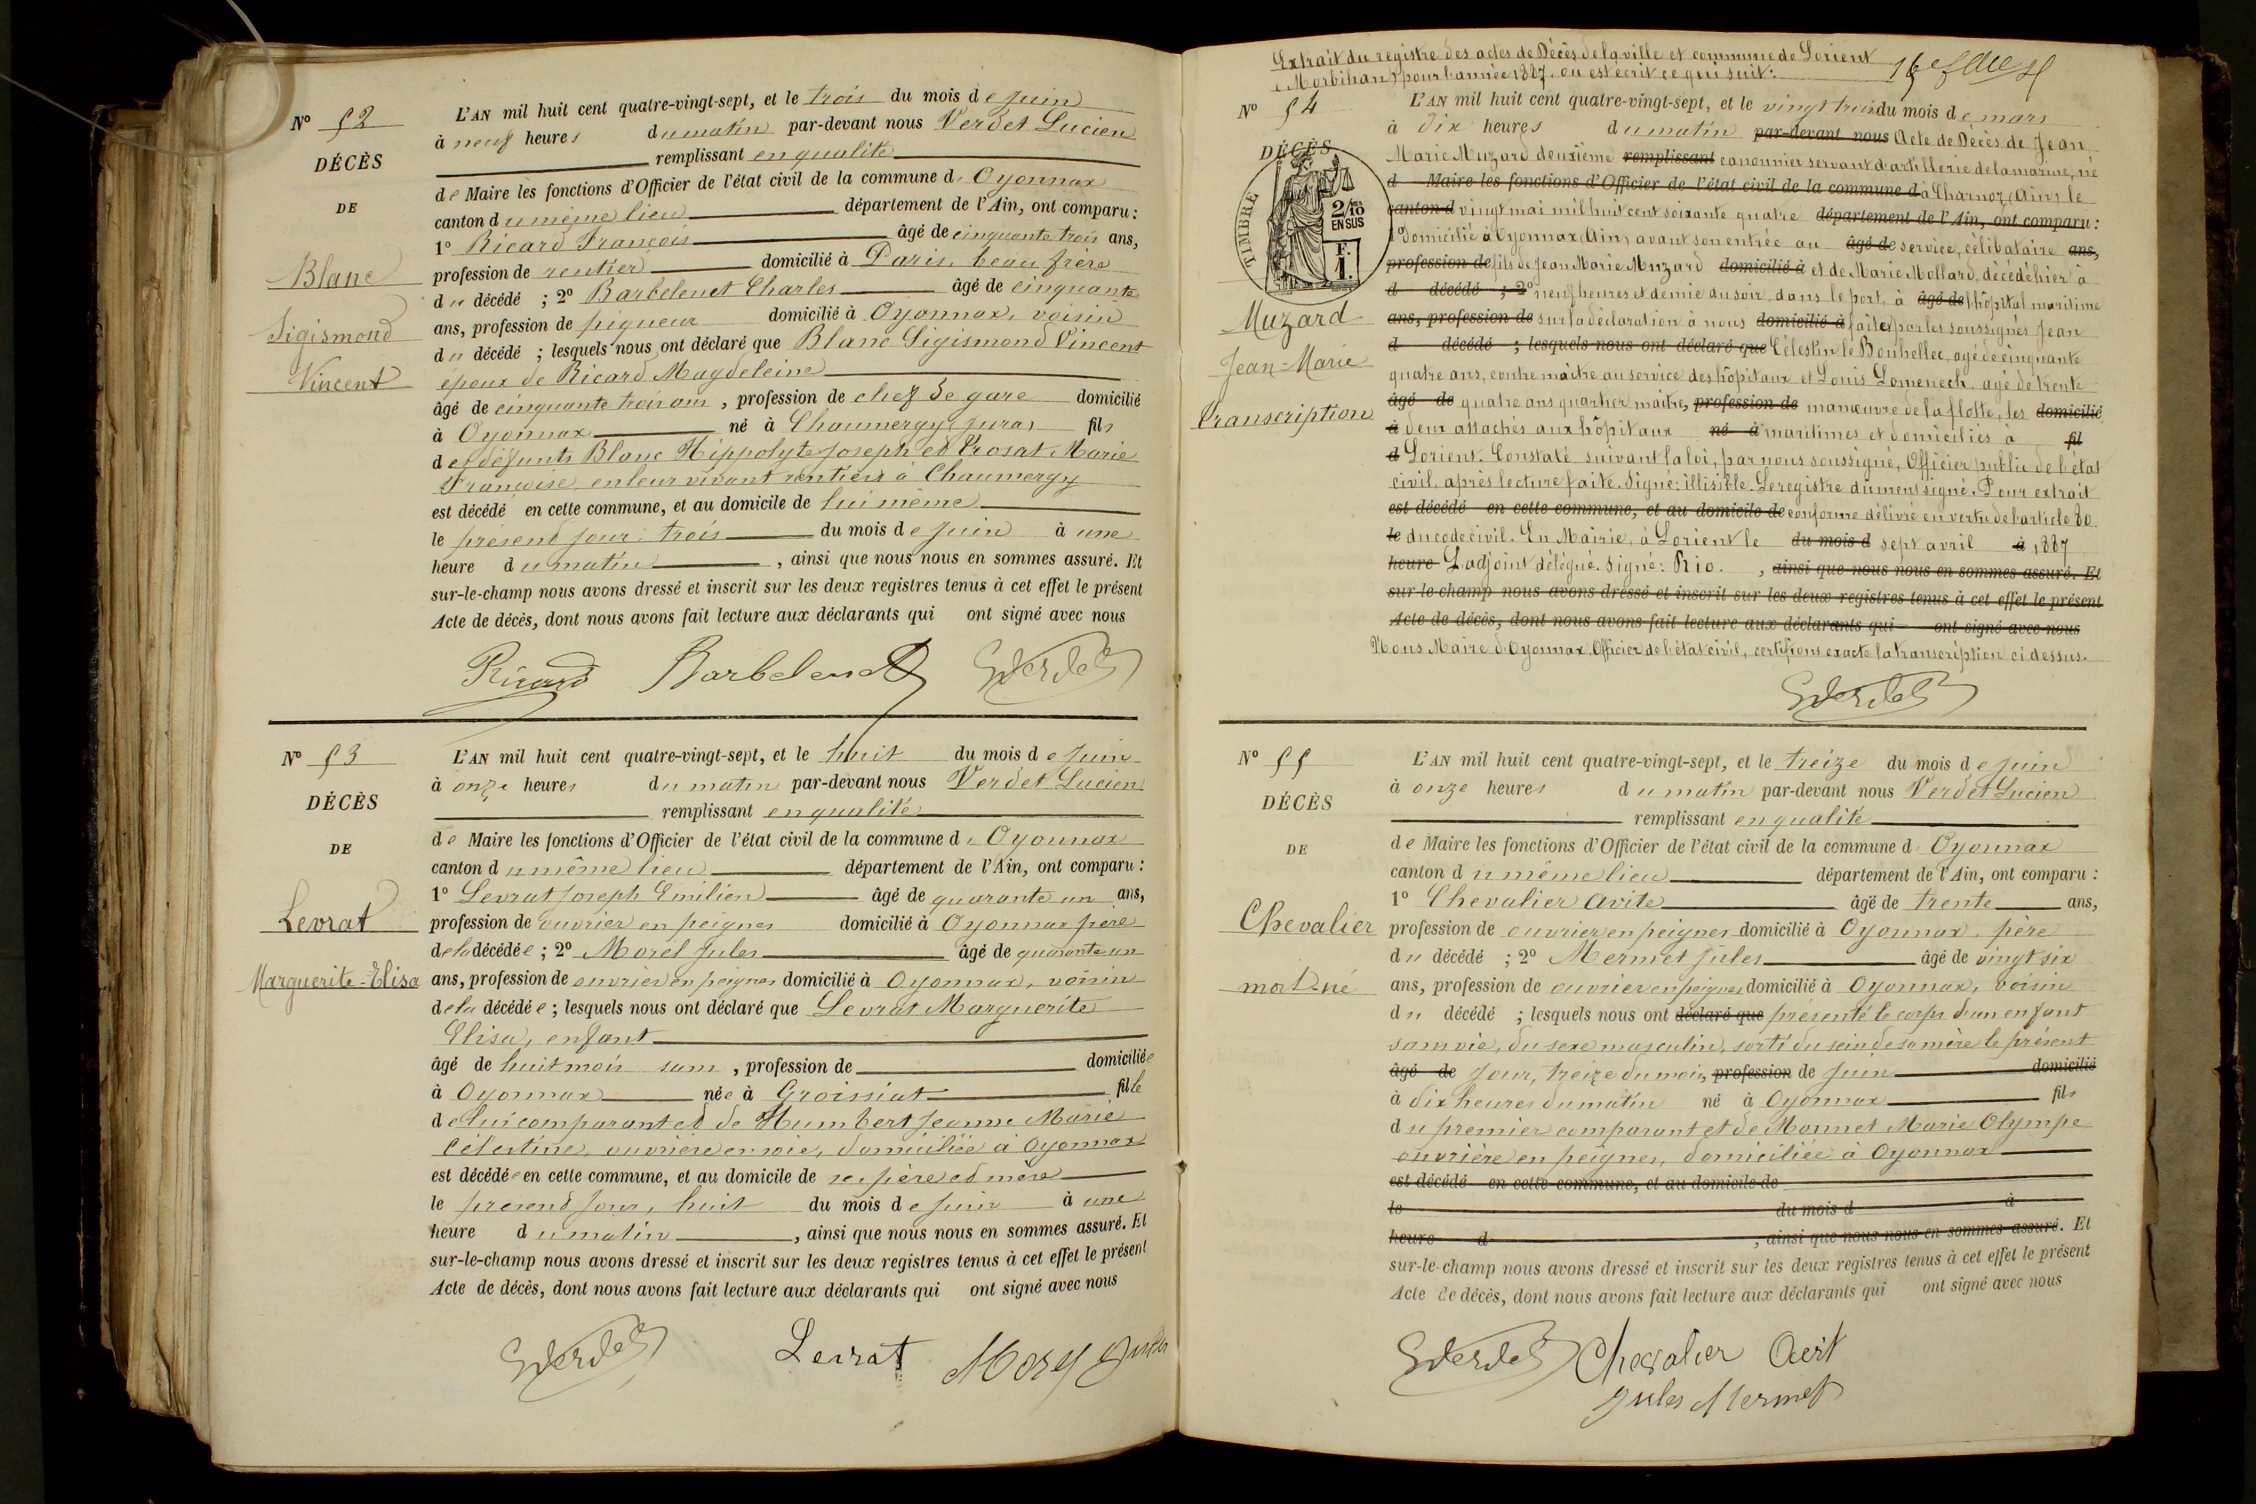 Nº 52
DÉCÈS
DE
Blanc
Sigismond
Vincent
L'AN mil huit cent quatre-vingt-sept, et le trois du mois de juin
à neuf heures du matin par-devant nous Verdet Lucien
remplissant en qualité
de Maire les fonctions d'Officier de l'état civil de la commune d'Oyonnax
canton du même lieu département de l'Ain, ont comparu :
1º Ricard François âgé de cinquante trois ans,
profession de rentier domicilié à Paris, beau frère
du décédé ; 2º Barbelenet Charles âgé de cinquante
ans, profession de piqueur domicilié à Oyonnax, voisin
du décédé ; lesquels nous ont déclaré que Blanc Sigismond Vincent
époux de Ricard Magdeleine
âgé de cinquante trois ans, profession de chef de gare domicilié
à Oyonnax né à Chaumergy (Jura) fils
des défunts Blanc Hippolyte Joseph et Prosat Marie
Françoise, en leur vivant rentiers à Chaumergy
est décédé en cette commune, et au domicile de lui même
le présent jour trois du mois de juin à une
heure du matin, ainsi que nous nous en sommes assuré. Et
sur-le-champ nous avons dressé et inscrit sur les deux registres tenus à cet effet le présent
Acte de décès, dont nous avons fait lecture aux déclarants qui ont signé avec nous
Ricard Barbelenet Verdet
Nº 53
DÉCÈS
DE
Levrat
Marguerite-Elisa
L'AN mil huit cent quatre-vingt-sept, et le huit du mois de juin
à onze heures du matin par-devant nous Verdet Lucien
remplissant en qualité
de Maire les fonctions d'Officier de l'état civil de la commune d'Oyonnax
canton du même lieu département de l'Ain, ont comparu :
1º Levrat Joseph Emilien âgé de quarante un ans,
profession de ouvrier en peignes domicilié à Oyonnax père
de la décédée ; 2º Morel Jules âgé de quarante un
ans, profession de ouvrier en peignes domicilié à Oyonnax, voisin
de la décédée ; lesquels nous ont déclaré que Levrat Marguerite
Elisa, enfant
âgé de huit mois sans, profession de domiciliée
à Oyonnax née à Groissiat fille
de lui comparant et de Humbert Jeanne Marie
Célestine, ouvrière en soie, domiciliée à Oyonnax
est décédée en cette commune, et au domicile de ses père et mère
le présent jour, huit du mois de juin à une
heure du matin, ainsi que nous nous en sommes assuré. Et
sur-le-champ nous avons dressé et inscrit sur les deux registres tenus à cet effet le présent
Acte de décès, dont nous avons fait lecture aux déclarants qui ont signé avec nous
Verdet Levrat Morel Jules
Extrait du registre des actes de Décès de la ville et commune de Lorient
(Morbihan) pour l'année 1887, où est écrit ce qui suit :
Nº 54
DÉCÈS
TIMBRE
2/10
EN SUS
F.
1.
Muzard
Jean-Marie
Transcription
L'AN mil huit cent quatre-vingt-sept, et le vingt trois du mois de mars
à dix heures du matin par-devant nous Acte de Décès de Jean
Marie Muzard deuxième remplissant canonnier servant d'artillerie de la marine, né
d Maire les fonctions d'Officier de l'état civil de la commune d à Charnoz (Ain) le
canton d vingt mai mil huit cent soixante quatre département de l'Ain, ont comparu :
1º Domicilié à Oyonnax (Ain) avant son entrée au âgé de service, célibataire ans,
profession de fils de Jean Marie Muzard domicilié à et de Marie Mollard, décédé hier à
d décédé ; 2º neuf heures et demie du soir, dans le port, à âgé de l'hôpital maritime
ans, profession de sur la déclaration à nous domicilié à faite par les soussignés Jean
d décédé ; lesquels nous ont déclaré que Célestin le Bouhellec, âgé de cinquante
quatre ans, contre maître au service des hôpitaux et Louis Lomenech, âgé de trente
âgé de quatre ans quartier maître, profession de manœuvre de la flotte, les domicilié
à deux attachés aux hôpitaux né à maritimes et domiciliés à fil
d Lorient. Constaté suivant la loi, par nous soussigné, Officier public de l'état
civil, après lecture faite. Signé : illisible. Le registre dûment signé. Pour extrait
est décédé en cette commune, et au domicile de conforme délivré en vertu de l'article 80
le du code civil. En Mairie, à Lorient le du mois d sept avril à 1887
heure L'adjoint délégué. Signé : Rio. , ainsi que nous nous en sommes assuré. Et
sur-le-champ nous avons dressé et inscrit sur les deux registres tenus à cet effet le présent
Acte de décès, dont nous avons fait lecture aux déclarants qui ont signé avec nous
Nous Maire d'Oyonnax, Officier de l'état civil, certifions exacte la transcription ci dessus.
Verdet
Nº 55
DÉCÈS
DE
Chevalier
mort né
L'AN mil huit cent quatre-vingt-sept, et le treize du mois de juin
à onze heures du matin par-devant nous Verdet Lucien
remplissant en qualité
de Maire les fonctions d'Officier de l'état civil de la commune d'Oyonnax
canton du même lieu département de l'Ain, ont comparu :
1º Chevalier Avite âgé de trente ans,
profession de ouvrier en peignes domicilié à Oyonnax, père
du décédé ; 2º Mermet Jules âgé de vingt six
ans, profession de ouvrier en peignes domicilié à Oyonnax, voisin
du décédé ; lesquels nous ont déclaré que présenté le corps d'un enfant
sans vie, du sexe masculin, sorti du sein de sa mère le présent
âgé de jour, treize du mois, profession de juin domicilié
à dix heures du matin né à Oyonnax fils
du premier comparant et de Monnet Marie Olympe
ouvrière en peignes, domiciliée à Oyonnax
est décédé en cette commune, et au domicile de
le du mois d à
heure d , ainsi que nous nous en sommes assuré. Et
sur-le-champ nous avons dressé et inscrit sur les deux registres tenus à cet effet le présent
Acte de décès, dont nous avons fait lecture aux déclarants qui ont signé avec nous
Verdet Chevalier Avit
Jules Mermet